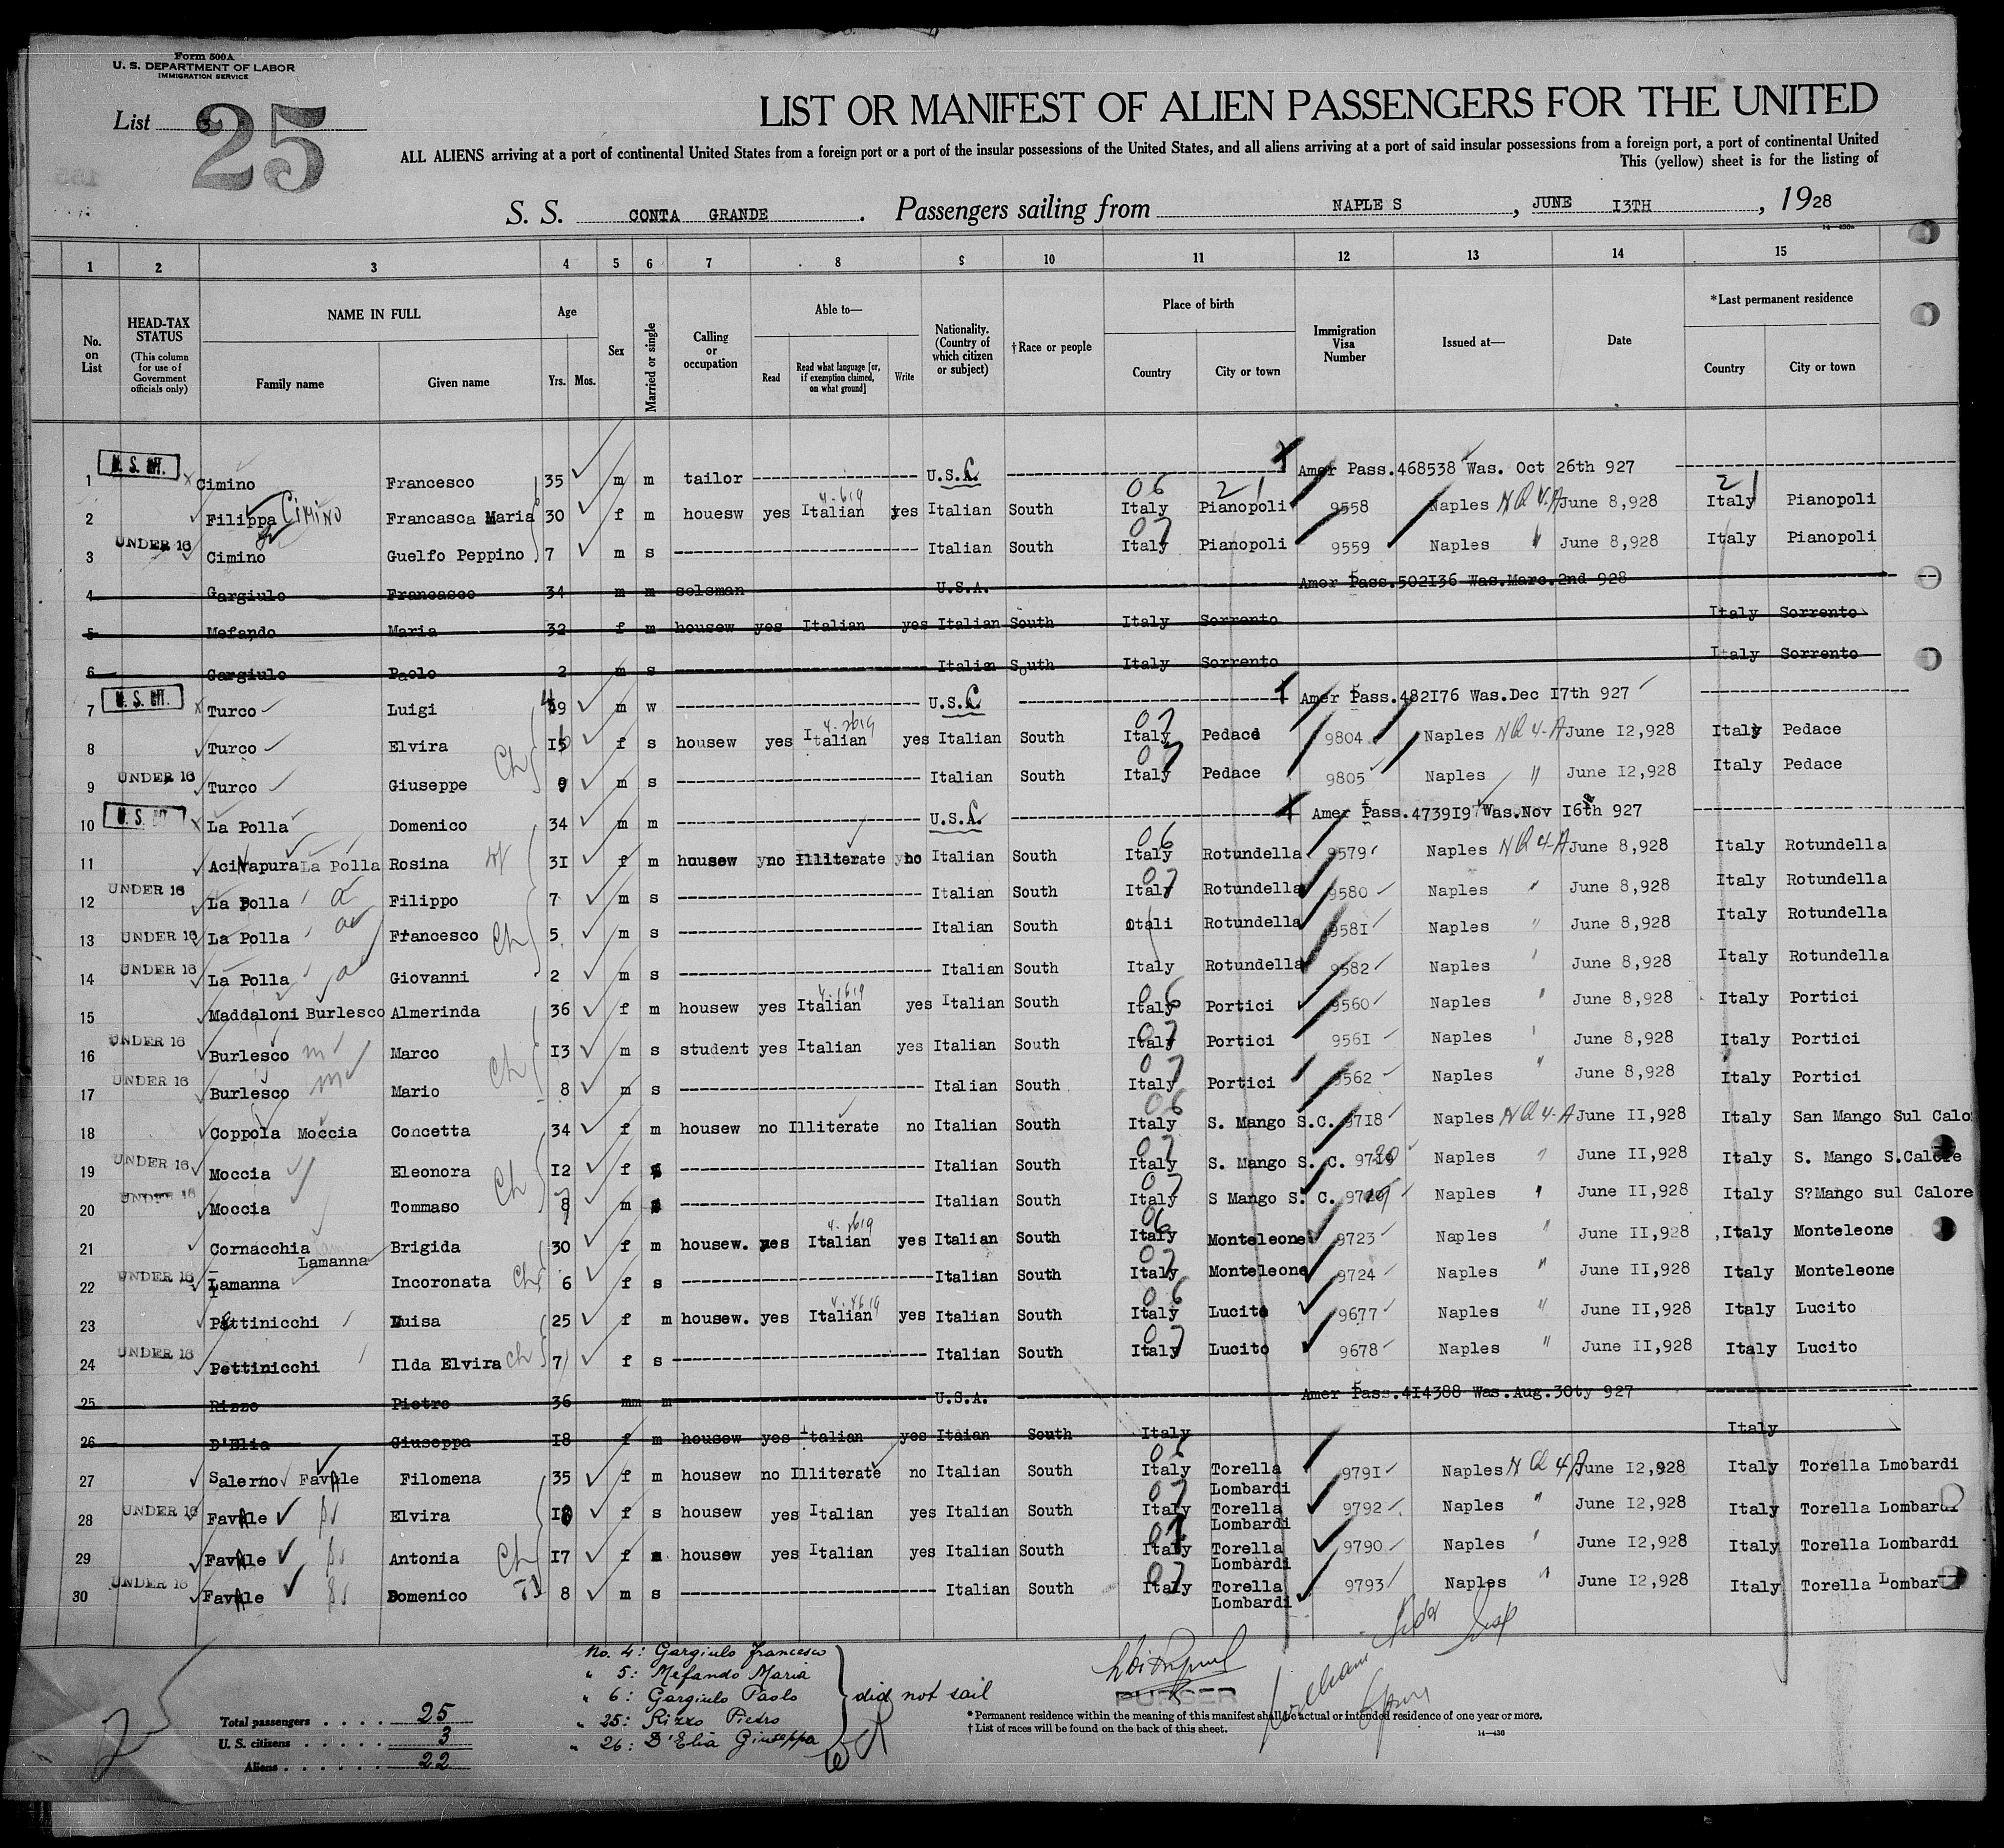 Form 500A
U. S. DEPARTMENT OF LABOR
IMMIGRATION SERVICE
List 25
LIST OR MANIFEST OF ALIEN PASSENGERS FOR THE UNITED
ALL ALIENS arriving at a port of continental United States from a foreign port or a port of the insular possessions of the United States, and all aliens arriving at a port of said insular possessions from a foreign port, a port of continental United
This (yellow) sheet is for the listing of
S. S. CONTA GRANDE . Passengers sailing from NAPLE S , JUNE I3TH , 1928
1 2 3 4 5 6 7 8 9 10 11 12 13 14 15
No. on List HEAD-TAX STATUS (This column for use of Government officials only) NAME IN FULL Family name Given name Age Yrs. Mos. Sex Married or single Calling or occupation Able to— Read Read what language [or, if exemption claimed, on what ground] Write Nationality. (Country of which citizen or subject) †Race or people Place of birth Country City or town Immigration Visa Number Issued at— Date *Last permanent residence Country City or town
1 Cimino Francesco 35 m m tailor U.S. Amer Pass.468538 Was. Oct 26th 927
2 Filippa CIMINO Francasca Maria 30 f m houesw yes Italian yes Italian South Italy Pianopoli 9558 Naples NQ 4-A June 8,928 Italy Pianopoli
3 UNDER 16 Cimino Guelfo Peppino 7 m s Italian South Italy Pianopoli 9559 Naples " June 8,928 Italy Pianopoli
4 Gargiulo Francasco 34 m m selsman U.S.A. Amer Pass.502I36 Was.Marc.2nd 928
5 Mefando Maria 32 f m housew yes Italian yes Italian South Italy Sorrento Italy Sorrento
6 Gargiulo Paolo 2 m s Italian South Italy Sorrento Italy Sorrento
7 Turco Luigi 49 m w U.S. Amer Pass.482I76 Was.Dec I7th 927
8 Turco Elvira f s housew yes Italian yes Italian South Italy Pedace 9804 Naples NQ 4-A June I2,928 Italy Pedace
9 UNDER 16 Turco Giuseppe 9 m s Italian South Italy Pedace 9805 Naples " June I2,928 Italy Pedace
10 La Polla Domenico 34 m m U.S. Amer Pass.4739I9 Was.Nov I6th 927
11 Acinapura La Polla Rosina 3I f m housew no Illiterate no Italian South Italy Rotundella 9579 Naples NQ 4-A June 8,928 Italy Rotundella
12 UNDER 16 La Polla Filippo 7 m s Italian South Italy Rotundella 9580 Naples " June 8,928 Italy Rotundella
13 UNDER 16 La Polla Francesco 5 m s Italian South Itali Rotundella 958I Naples " June 8,928 Italy Rotundella
14 UNDER 16 La Polla Giovanni 2 m s Italian South Italy Rotundella 9582 Naples " June 8,928 Italy Rotundella
15 Maddaloni Burlesco Almerinda 36 f m housew yes Italian yes Italian South Italy Portici 9560 Naples " June 8,928 Italy Portici
16 UNDER 16 Burlesco Marco I3 m s student yes Italian yes Italian South Italy Portici 956I Naples " June 8,928 Italy Portici
17 UNDER 16 Burlesco Mario 8 m s Italian South Italy Portici 9562 Naples " June 8,928 Italy Portici
18 Coppola Moccia Concetta 34 f m housew no Illiterate no Italian South Italy S. Mango S.C. 97I8 Naples NQ 4-A June II,928 Italy San Mango Sul Calo
19 UNDER 16 Moccia Eleonora I2 f s Italian South Italy S. Mango S. C. 9720 Naples " June II,928 Italy S. Mango S.Calore
20 UNDER 16 Moccia Tommaso m s Italian South Italy S Mango S. C. 9719 Naples " June II,928 Italy S?Mango sul Calore
21 Cornacchia Lamanna Brigida 30 f m housew. yes Italian yes Italian South Italy Monteleone 9723 Naples " June II,928 Italy Monteleone
22 UNDER 16 Lamanna Incoronata 6 f s Italian South Italy Monteleone 9724 Naples " June II,928 Italy Monteleone
23 Pettinicchi Luisa 25 f m housew. yes Italian yes Italian South Italy Lucito 9677 Naples " June II,928 Italy Lucito
24 UNDER 16 Pettinicchi Ilda Elvira 7 f s Italian South Italy Lucito 9678 Naples " June II,928 Italy Lucito
25 Rizzo Pietro 36 mm m U.S.A. Amer Pass.4I4388 Was.Aug.30ty 927
26 D'Elia Giuseppa I8 f m housew yes Italian yes Itaian South Italy Italy
27 Salerno Favale Filomena 35 f m housew no Illiterate no Italian South Italy Torella Lombardi 979I Naples NQ 4A June I2,928 Italy Torella Lmobardi
28 UNDER 16 Favale Elvira f s housew yes Italian yes Italian South Italy Torella Lombardi 9792 Naples " June I2,928 Italy Torella Lombardi
29 Favale Antonia I7 f housew yes Italian yes Italian South Italy Torella Lombardi 9790 Naples " June I2,928 Italy Torella Lombardi
30 UNDER 16 Favale Domenico 8 m s Italian South Italy Torella Lombardi 9793 Naples " June I2,928 Italy Torella Lombar
No. 4: Gargiulo Francesco
" 5: Mefando Maria
" 6: Gargiulo Paolo
" 25: Rizzo Pietro
" 26: D'Elia Giuseppa
did not sail
PURSER
25
Total passengers . . . . 25
U. S. citizens . . . . . 3
Aliens . . . . . . 22
* Permanent residence within the meaning of this manifest shall be actual or intended residence of one year or more.
† List of races will be found on the back of this sheet.
14—430